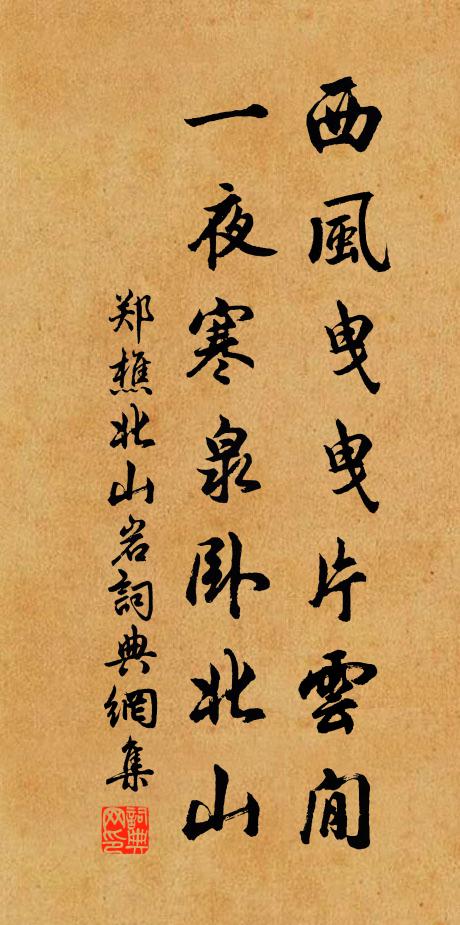 西風曳曳片雲閒
一夜寒泉臥北山
郑樵北山岩詞典網集
詞典網印